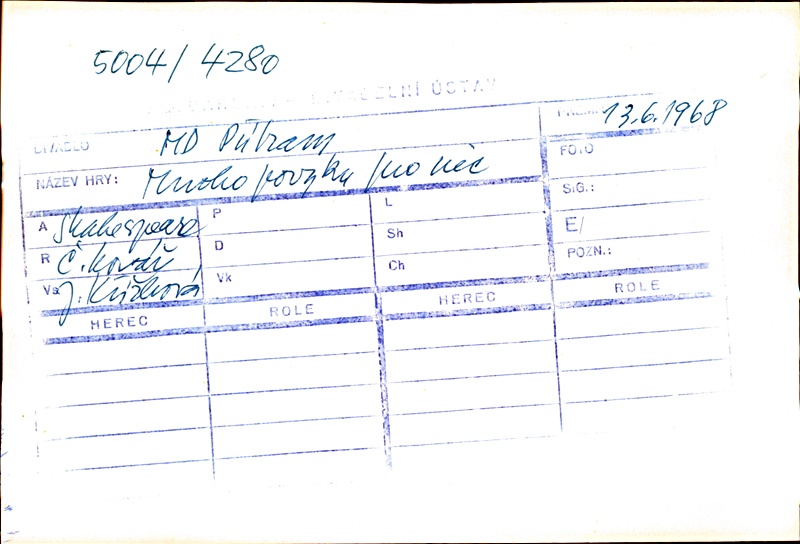 5004/4280
DIVADELNÍ ÚSTAV
DIVADLO MD Příbram 13.6.1968
NÁZEV HRY: Mnoho povyku pro nic FOTO
A Shakespeare P L SIG.:
R Č. Kovář D Sh E/
Vs J. Křížková Vk Ch POZN.:
HEREC ROLE HEREC ROLE